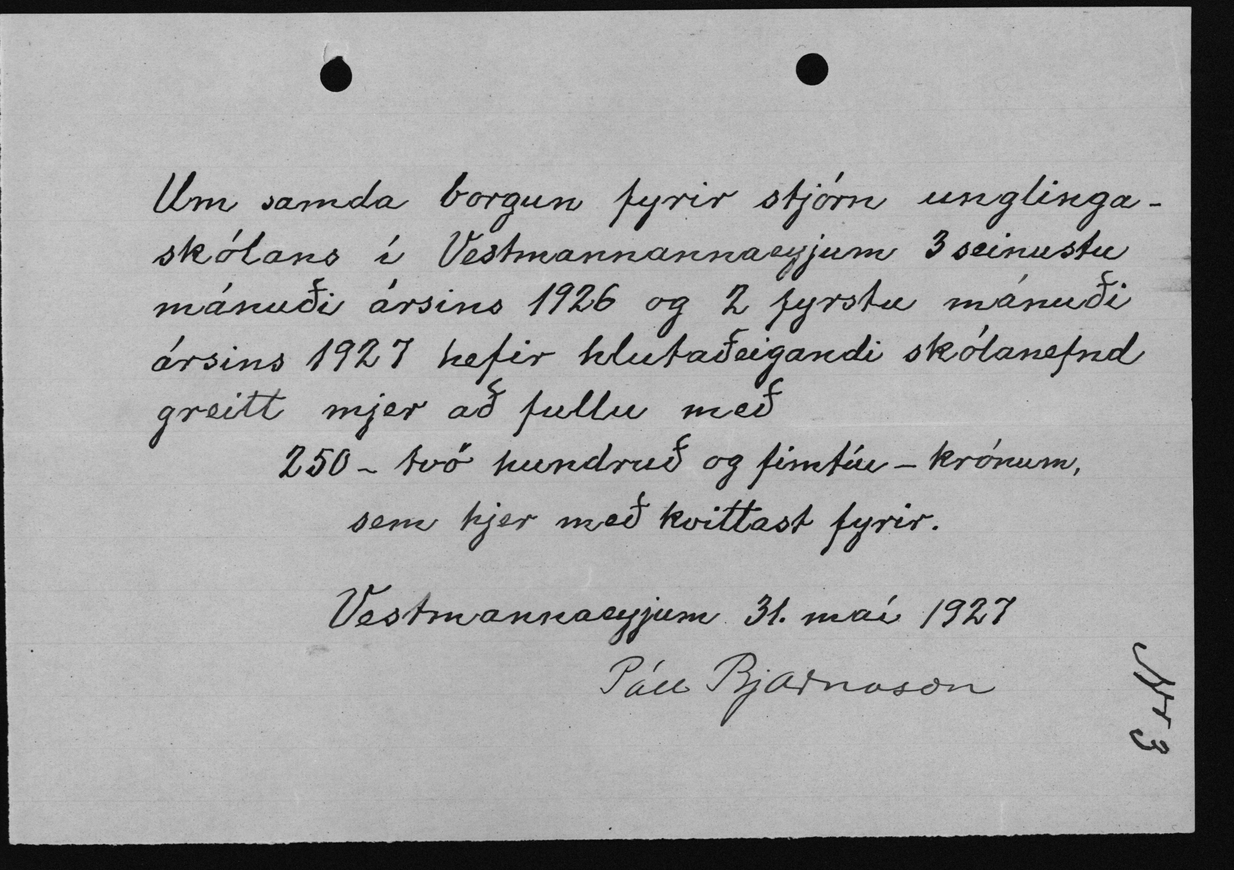 Um samda borgun fyrir stjórn unglinga-
skólans í Vestmannannaeyjum 3 seinustu
mánuði ársins 1926 og 2 fyrstu mánuði
ársins 1927 hefir hlutaðeigandi skólanefnd
greitt mjer að fullu með
250 - tvö hundruð og fimtíu - krónum,
sem hjer með kvittast fyrir.
Vestmannaeyjum 31. maí 1927
Páll Bjarnason
Nr 3